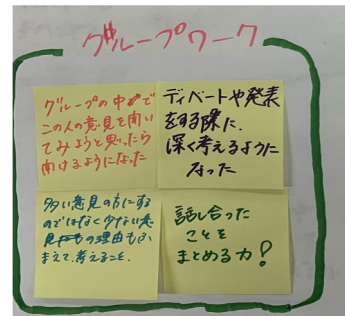 グループワーク
グループの中で
この人の意見を聞い
てみようと思ったら
聞けるようになった
ディベートや発表
をする際に、
深く考えるように
なった
多い意見の方にする
のではなく少ない意
見の理由もふ
まえて、考えること。
話し合った
ことを
まとめる力!